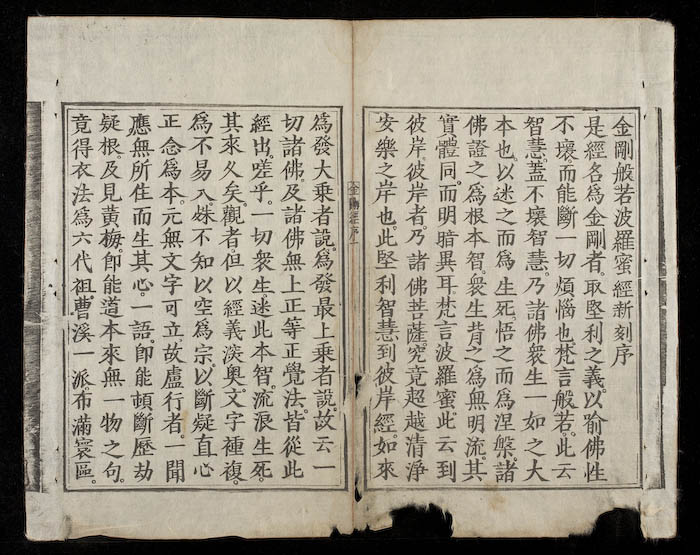 金剛般若波羅蜜經新刻序
是經名為金剛者。取堅利之義。以喻佛性
不壞而能斷一切煩惱也。梵言般若。此云
智慧。蓋不壞智慧。乃諸佛衆生一如之大
本也。以迷之而爲生死。悟之而爲涅槃。諸
佛證之爲根本智。衆生背之爲無明流。其
實體同。而明暗異耳。梵言波羅蜜。此云到
彼岸。彼岸者。乃諸佛菩薩。究竟超越清淨
安樂之岸也。此堅利智慧到彼岸經。如來
金剛經序 一
爲發大乘者說。爲發最上乘者說。故云一
切諸佛。及諸佛無上正等正覺法。皆從此
經出。嗟乎。一切衆生迷此本智。流浪生死。
其來久矣。觀者。但以經義淡奧。文字種複。
爲不易入。姝不知以空爲宗。以斷疑直心
正念爲本。元無文字可立。故盧行者。一聞
應無所住而生其心。一語。卽能頓斷歷劫
疑根。及見黃梅。卽能道本來無一物之句。
竟得衣法爲六代祖。曹溪一派。布滿寰區。